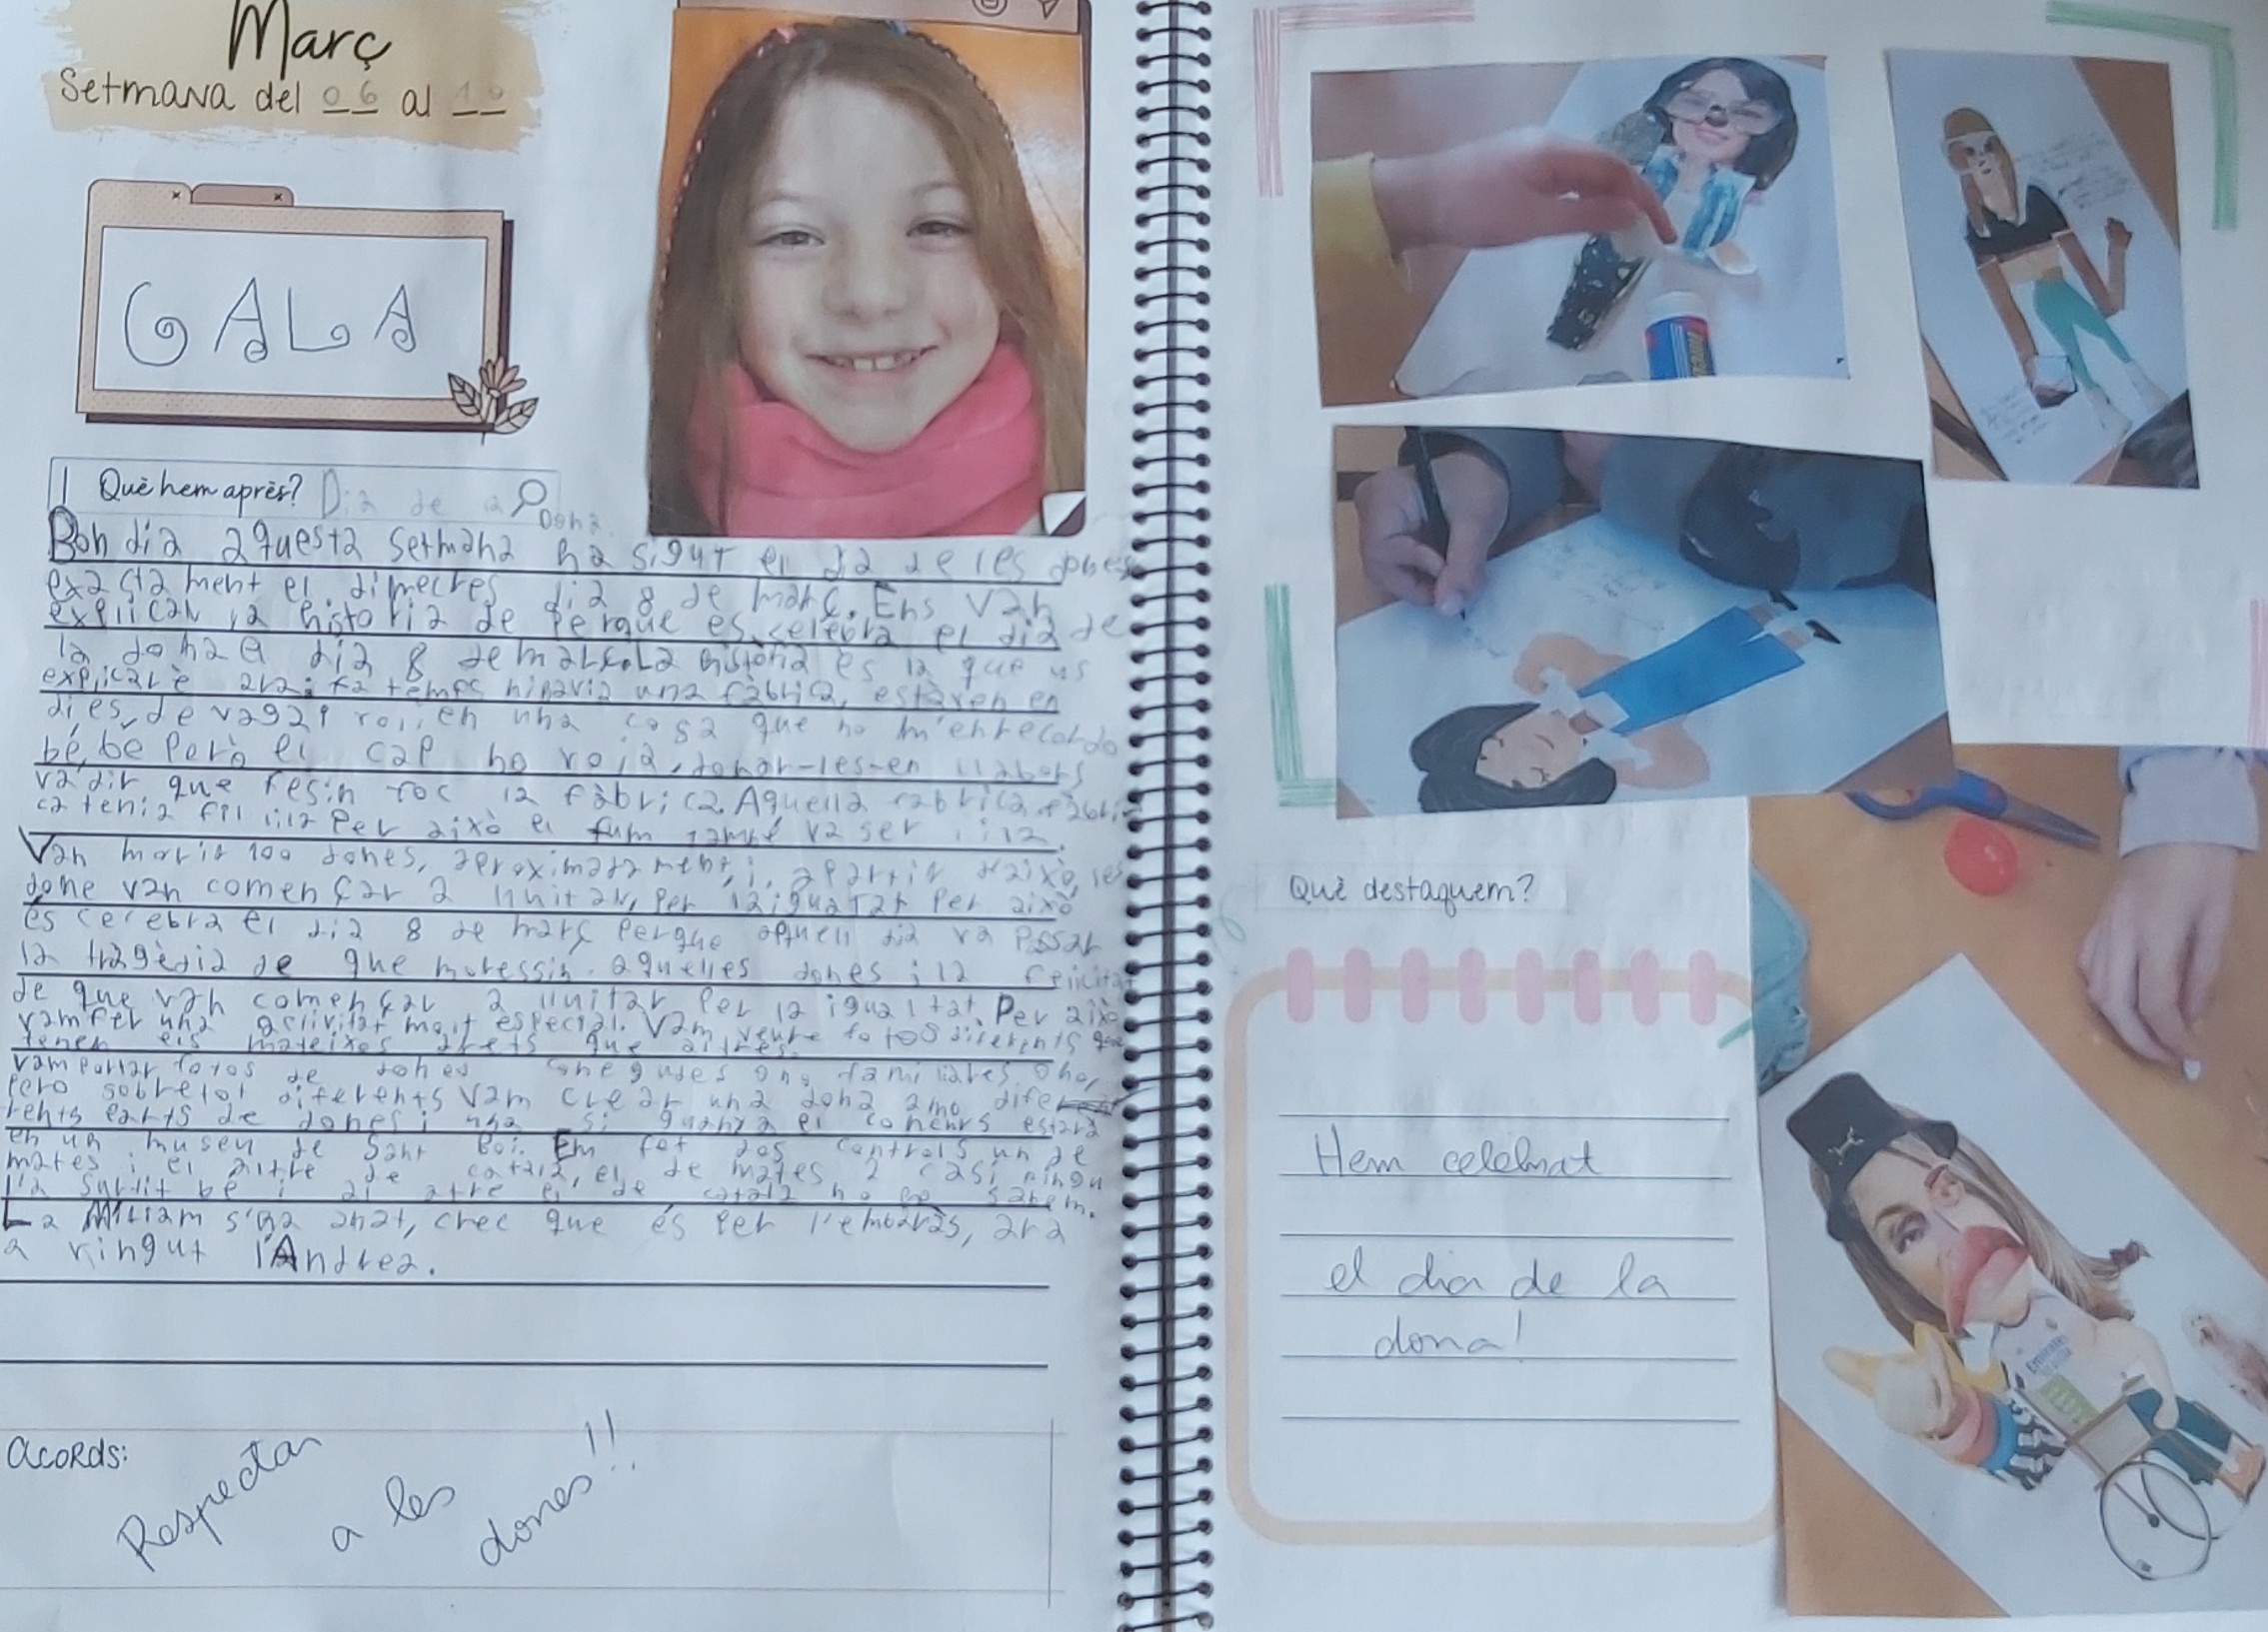 Març
Setmana del 06 al 10
GALA
Què hem après? Dia de la Dona
Bon dia aquesta setmana ha sigut el dia de les dones
exactament el dimecres dia 8 de març. Ens van
explicar la historia de perque es selebra el dia de
la dona el dia 8 de març. La història es la que us
explicarè ara: fa temps hi havia una fàbrica, estaven en
dies de vaga i volien una cosa que no m'enrecordo
bé, bé però el cap no volia donar-les-en llabors
va dir que fesin foc la fàbrica. Aquella fabrica fàbri
ca tenia fil lila per això el fum també va ser lila.
Van morir 100 dones, aproximadament, i apartir d'aixo, les
done van començar a lluitar, per la igualtat per això
és cerebra el dia 8 de març perque aquell dia va pssar
la tragèdia de que moressin aquelles dones i la felicitat
de que van començar a lluitar per la igualtat. Per això
vam fer una activitat molt especial. Vam veure fotos diferents que
tenen els mateixos drets que altres.
vam portar fotos de dones conegudes ono, familiares ono,
pero sobretot diferents vam crear una dona amb dife
rents parts de dones i una si guanya el concurs estarà
en un museu de Sant Boi. Em fet dos controls un de
mates i el altre de català, el de mates a casi ningu
l'a surtit bé i al atre el de català no ho sabem.
La Míriam s'ha anat, crec que és per l'embaràs, ara
a vingut l'Andrea.
Acords:
Respectar
a les
dones!!
Què destaquem?
Hem celebrat
el dia de la
dona!